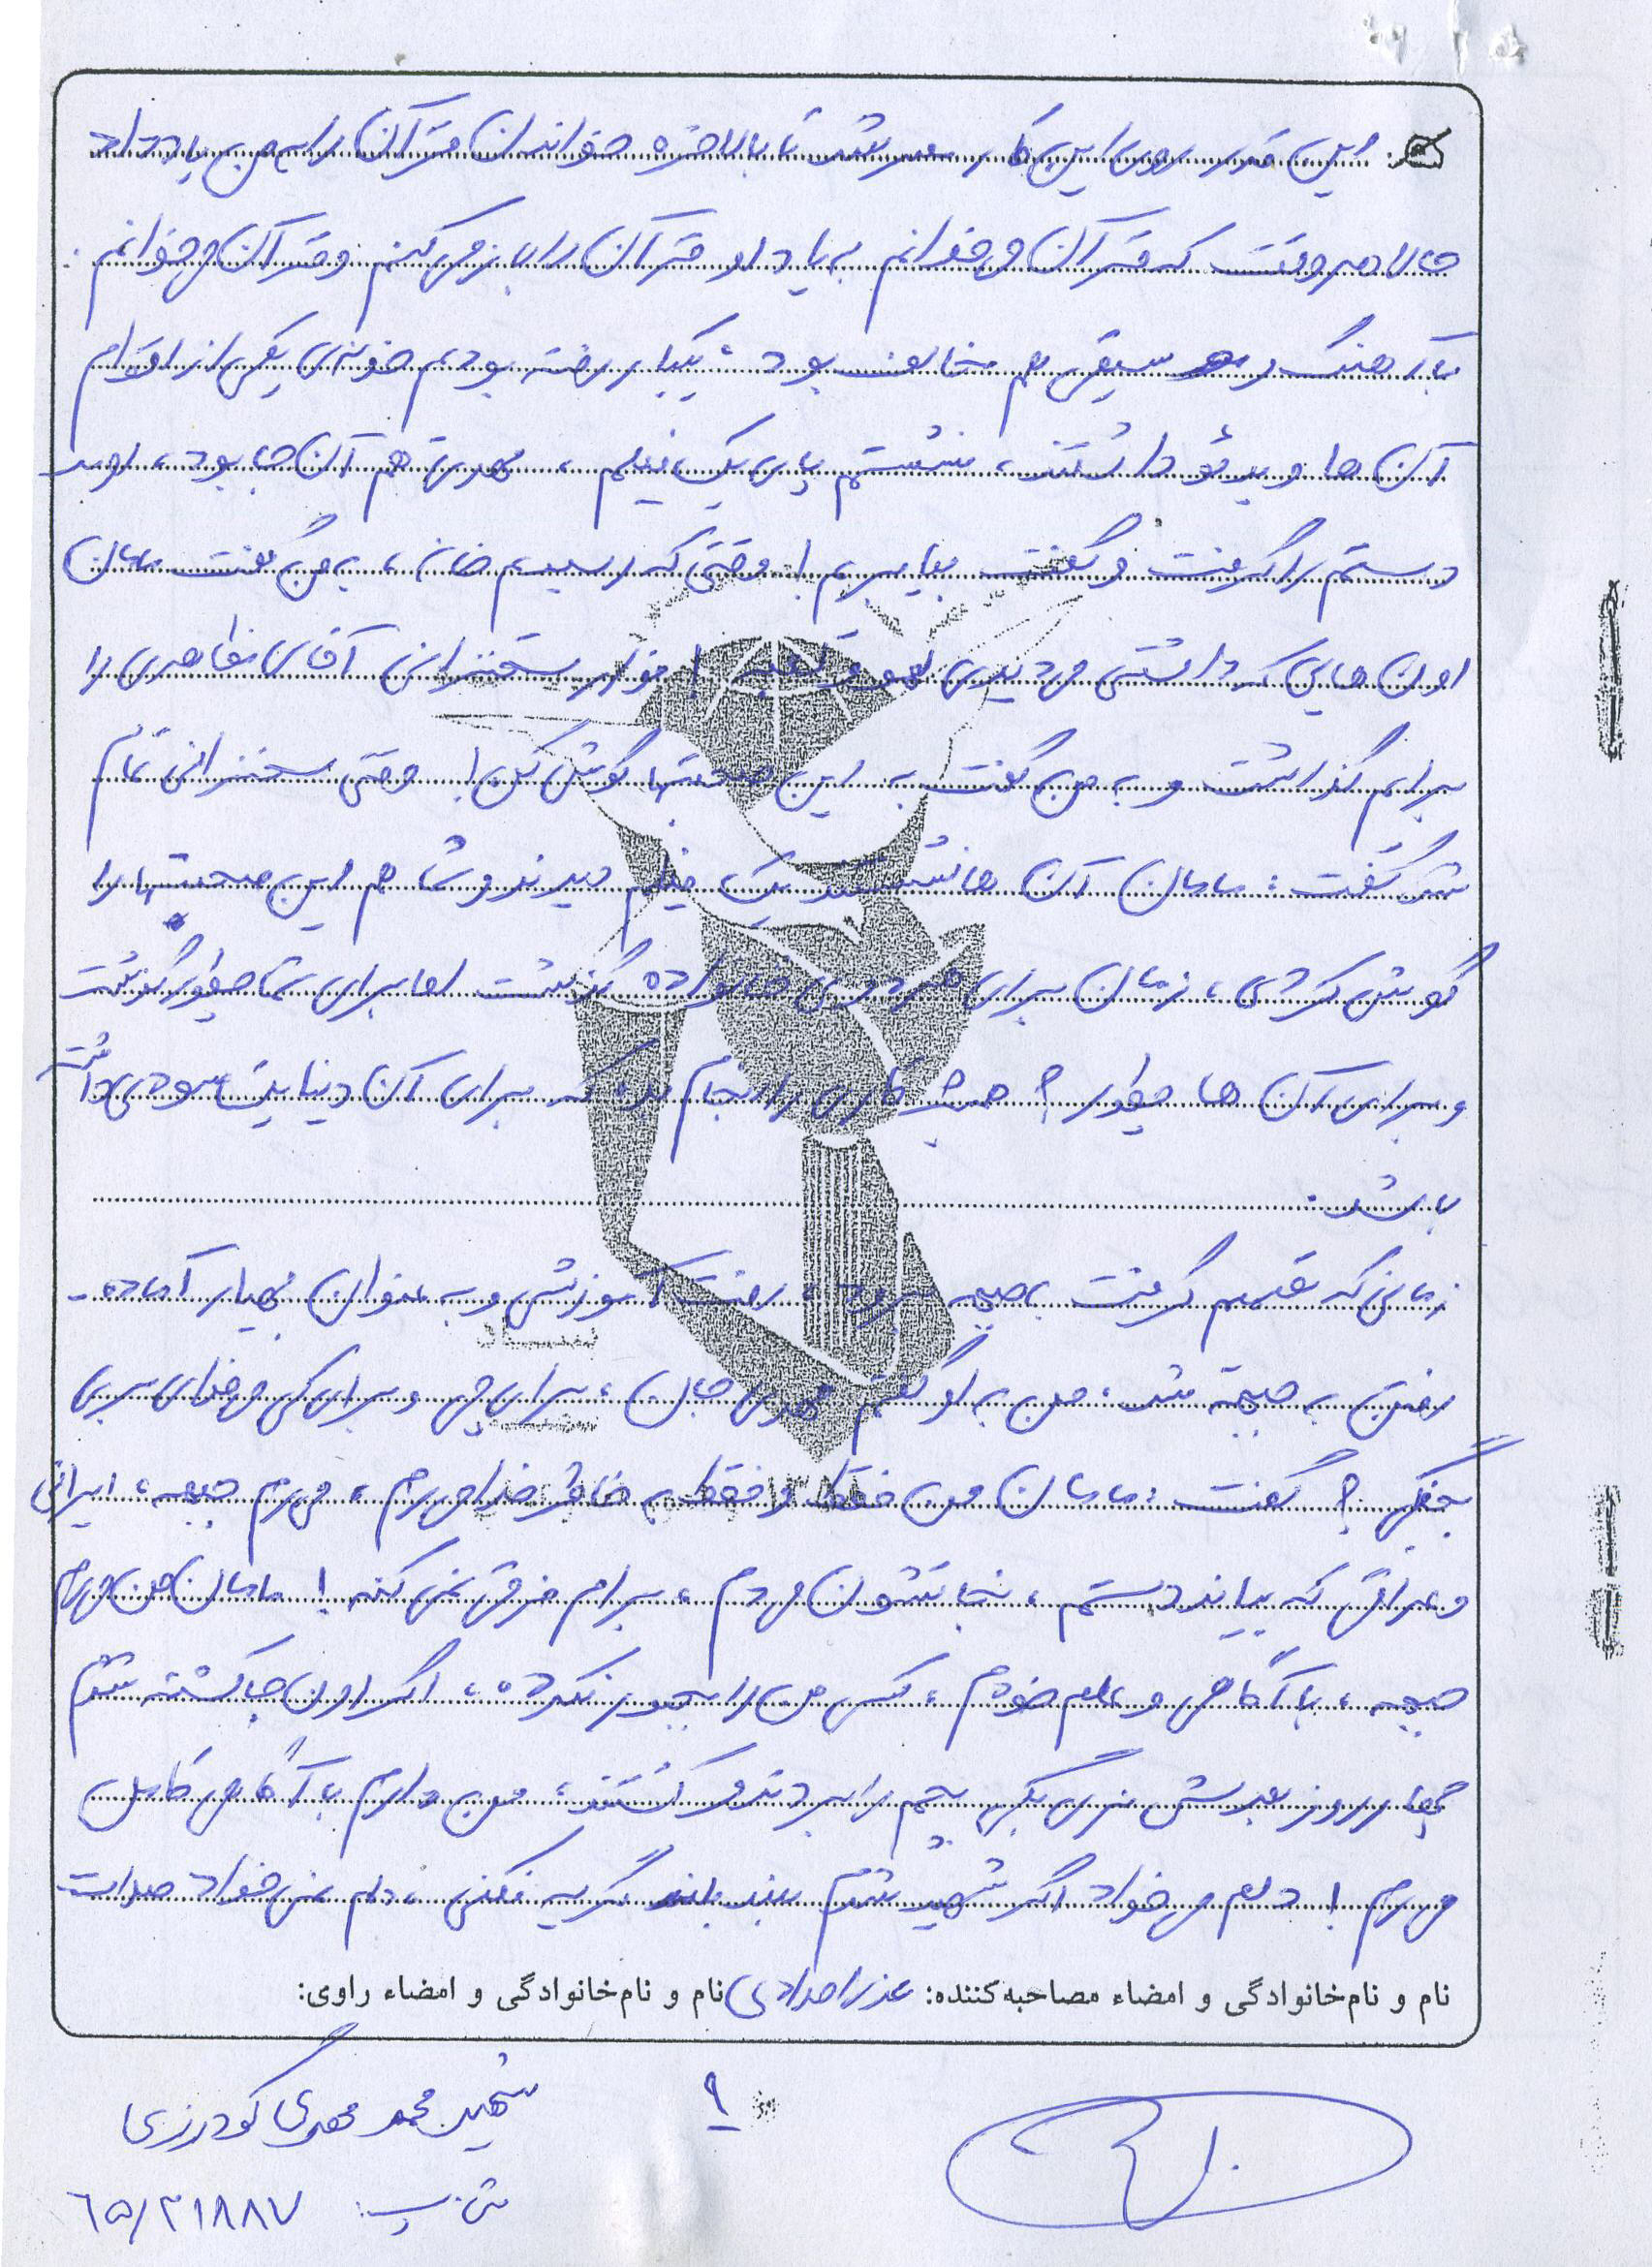 این قدر روی این کار مصر شد تا بالاخره خواندن قرآن را به من یاد داد
حالا هر وقت که قرآن می خوانم به یاد او قرآن را باز می کنم و قرآن می خوانم.
با آهنگ و موسیقی هم مخالف بود، یکبار رفته بودیم خونه ی یکی از اقوام
آن ها ویدئو داشتند، نشستم پای یک فیلم، مهدی هم آن جا بود، اومد
دستم را گرفت و گفت بیا بریم! وقتی که رسیدیم خانه، به من گفت مامان
اون هایی که داشتی می دیدی لهو و لعبه! نوار سخنرانی آقای مظاهری را
برایم گذاشت و به من گفت به این صحبتها گوش کن! وقتی سخنرانی تمام
شد گفت: مامان آن ها نشستند یک فیلم دیدند و شما هم این صحبتها را
گوش کردی، زمان برای هر دوی خانواده گذشت اما برای شما چطور گذشت
و برای آن ها چطور؟ همیشه کاری را انجام بده که برای آن دنیایت سودی داشته
باشد.
زمانی که تصمیم گرفت به جبهه برود، رفت آموزشی و به عنوان بهیار آماده
رفتن به جبهه شد، من به او گفتم مهدی جان، برای چی و برای کی می خوای بری
بجنگی؟ گفت: مامان من فقط و فقط به خاطر خدا می رم، می رم جبهه، ایرانی
و عراقی که بیاند دستم، نجاتشون می دم، برام فرقی نمی کنه! مامان من می رم
جبهه، با آگاهی و علم خودم، کسی من را مجبور نکرده، اگر اون جا کشته شدم
چهار روز بعدش نری بگی بچم را بردند و کشتند، من دارم با آگاهی کامل
می رم! دلم می خواد اگر شهید شدم بلند بلند گریه نکنی، دلم نمی خواد صدات
نام و نام‌خانوادگی و امضاء مصاحبه‌کننده: عذرا مرادی نام و نام‌خانوادگی و امضاء راوی:
شهید محمد مهدی گودرزی
۹
ش پ: ۶۵/۲۱۸۸۷